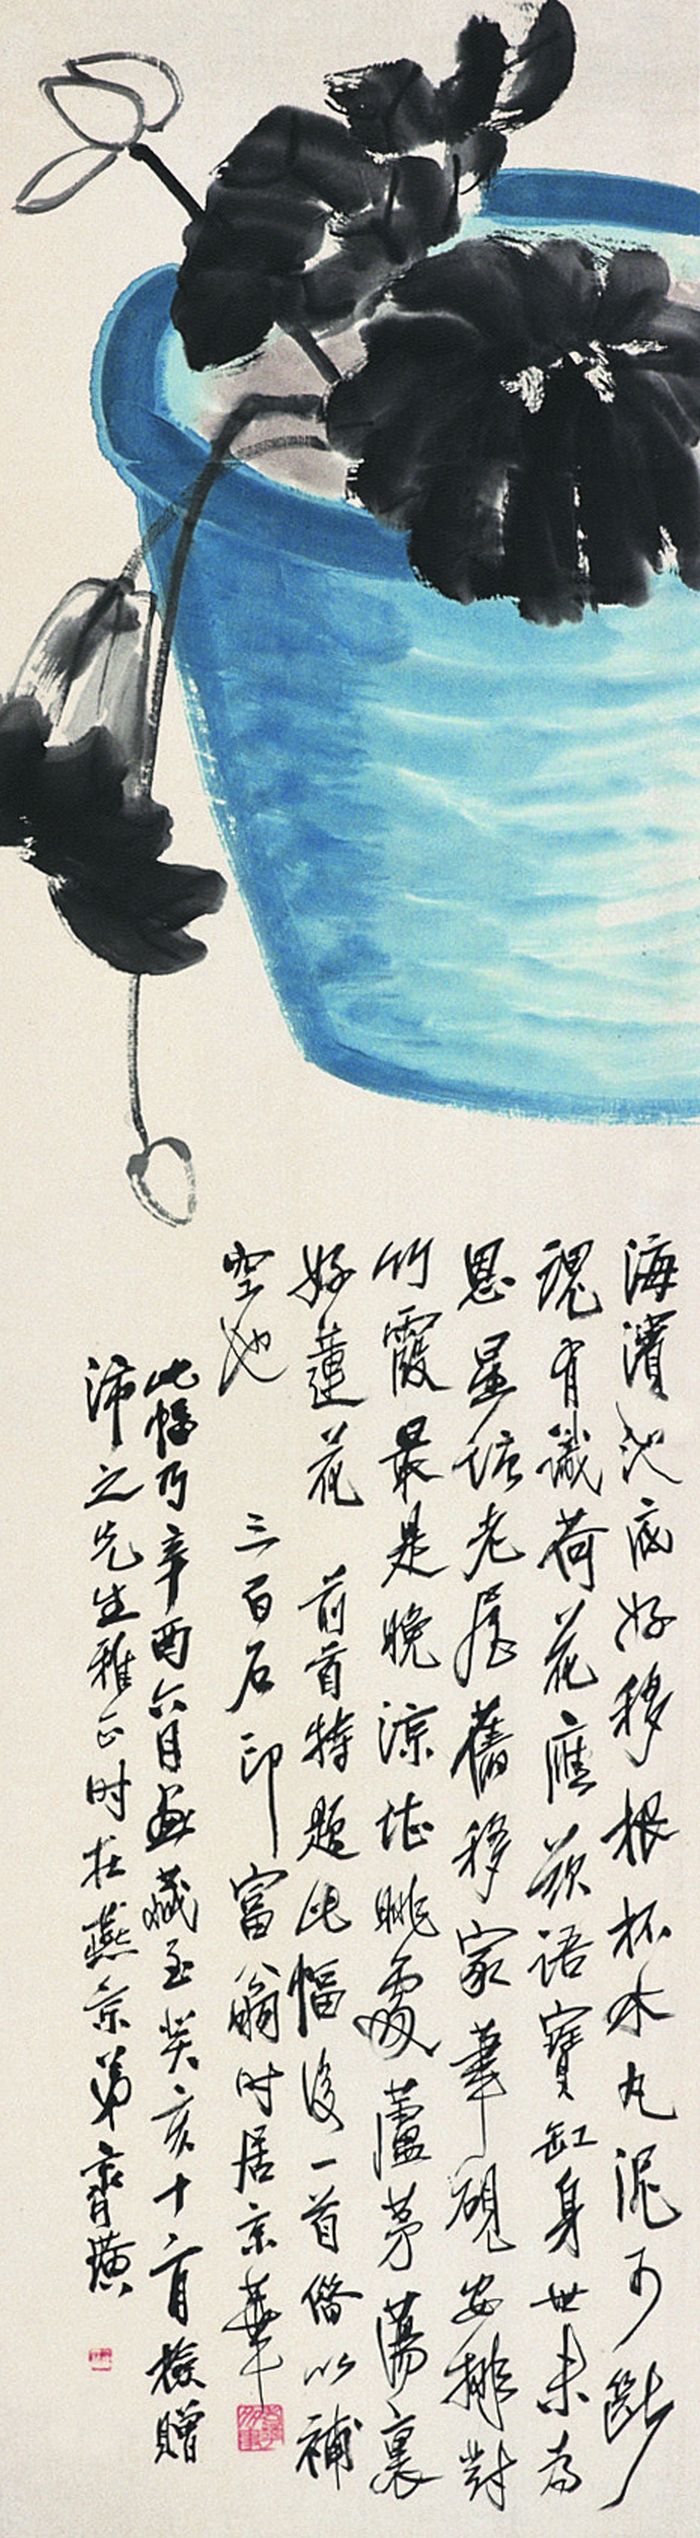 海濱池底好移根杯水丸泥可斷
魂有識荷花應欲語寶缸身世未為
恩星塘老屋舊移家筆硯安排對
竹霞最是晚涼堪眺處蘆茅蕩裏
好蓮花 前首特題此幅後一首借以補
空也 三百石印富翁時居京華
此幅乃辛酉六月畫藏至癸亥十二月檢贈
沛之先生雅正时在燕京弟齊璜